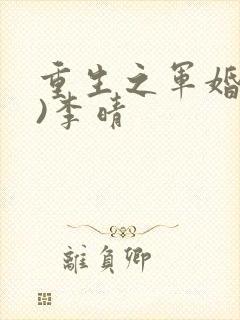 重生之军婚
)李晴
離負卿